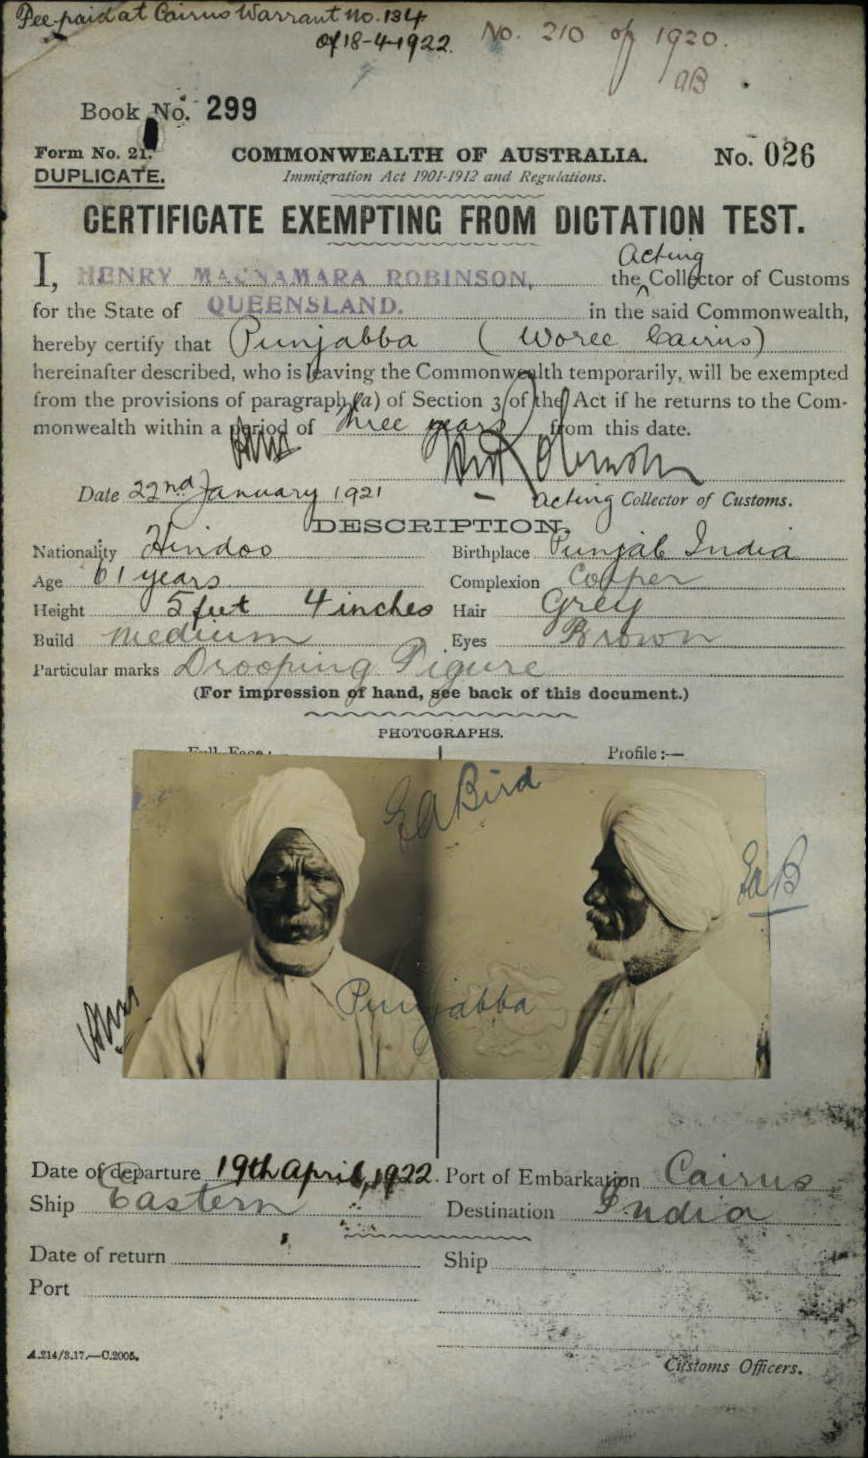 Fee paid at Cairns Warrant No. 134
of 18-4-1922. No. 210 of 1920.
aB
Book No. 299
Form No. 21.
DUPLICATE.
COMMONWEALTH OF AUSTRALIA. No. 026
Immigration Act 1901-1912 and Regulations.
CERTIFICATE EXEMPTING FROM DICTATION TEST.
Acting
I, HENRY MACNAMARA ROBINSON, the Collector of Customs
for the State of QUEENSLAND. in the said Commonwealth,
hereby certify that Punjabba (Woree Cairns)
hereinafter described, who is leaving the Commonwealth temporarily, will be exempted
from the provisions of paragraph (a) of Section 3 of the Act if he returns to the Com-
monwealth within a period of three years from this date.
Date 22nd January 1921 Acting Collector of Customs.
DESCRIPTION.
Nationality Hindoo Birthplace Punjab India
Age 61 years Complexion Copper
Height 5 feet 4 inches Hair Grey
Build Medium Eyes Brown
Particular marks Drooping Figure
(For impression of hand, see back of this document.)
PHOTOGRAPHS.
Full Face:— Profile:—
EA Bird
EaB
Punjabba
Date of departure 19th April, 1922. Port of Embarkation Cairns
Ship Eastern Destination India
Date of return Ship
Port
A.214/3.17.—C.2005.
Customs Officers.